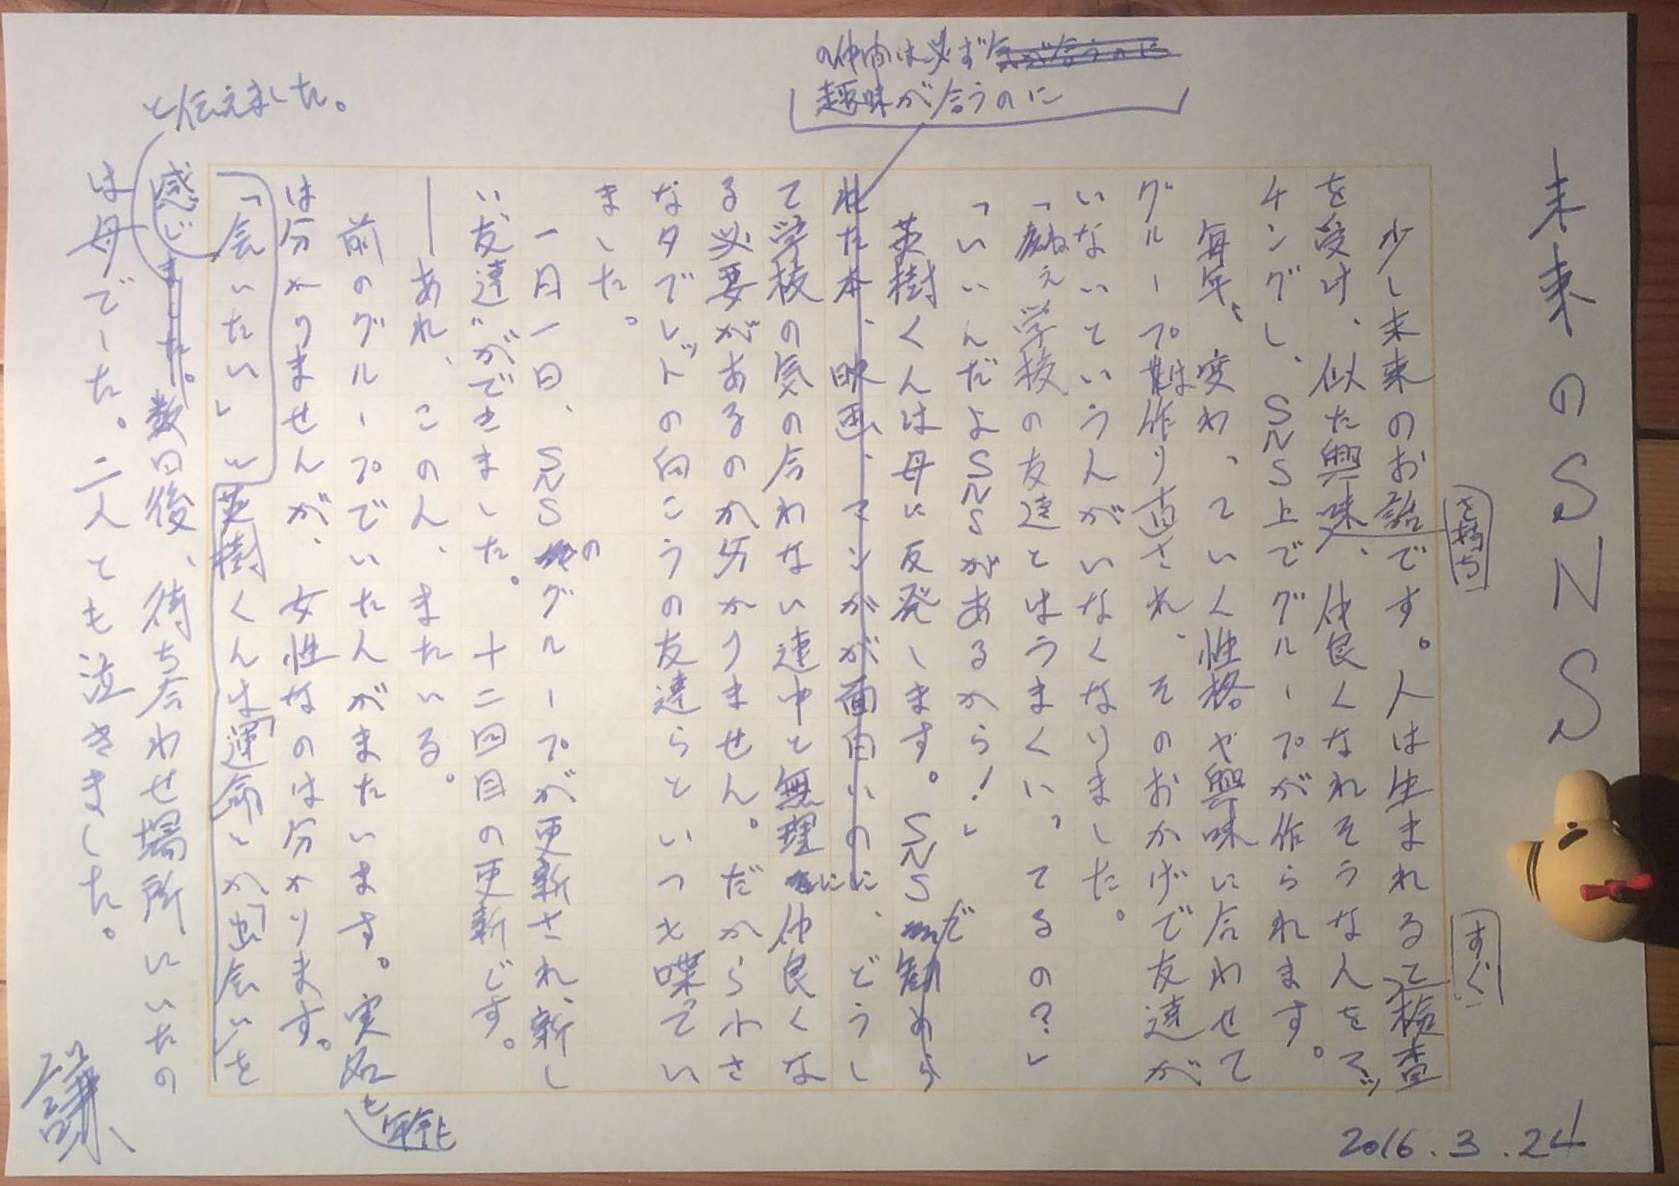 未来のSNS
少し未来のお話です。人は生まれるて検査
すぐに
を受け、似た興味、仲良くなれそうな人をマッ
を持ち
チングし、SNS上でグループが作られます。
毎年、変わっていく性格や興味に合わせて
グループは作り直され、そのおかげで友達が
いないという人がいなくなりました。
「ねぇ学校の友達とはうまくいってるの?」
「いいんだよSNSがあるから!」
英樹くんは母に反発します。SNSで勧めら
れた本、映画、マンガが面白いのに、どうし
の仲間は必ず気が合うのに
趣味が合うのに
て学校の気の合わない連中と無理に仲良くな
る必要があるのか分かりません。だから小さ
なタブレットの向こうの友達らといつも喋ってい
ました。
一日一日、SNSのグループが更新され、新し
い“友達”ができました。十二回目の更新です。
――あれ、この人、またいる。
前のグループでいた人がまたいます。実名も
年齢も
は分かりませんが、女性なのは分かります。
「会いたい」と英樹くんは「運命」か「出会い」を
感じました。数日後、待ち合わせ場所にいたの
と伝えました。
は母でした。二人とも泣きました。
2016.3.24